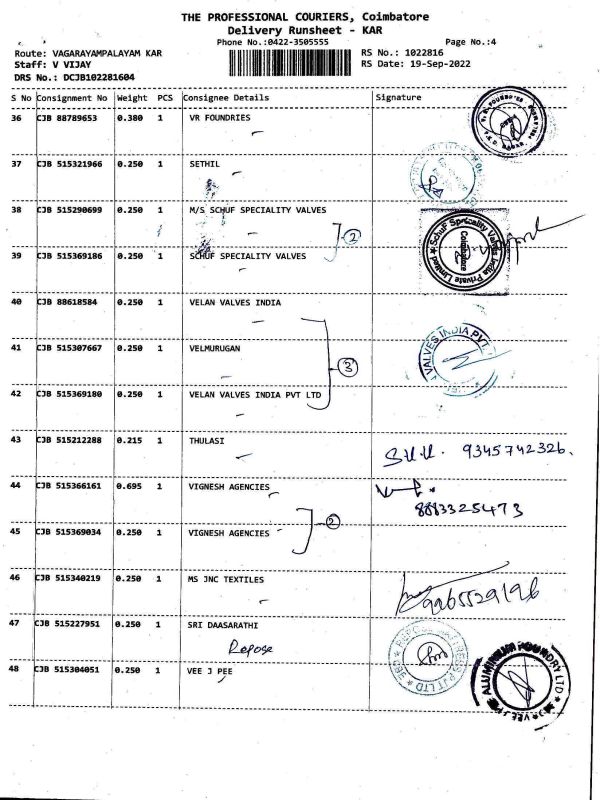 THE PROFESSIONAL COURIERS, Coimbatore
Delivery Runsheet - KAR
Phone No.:0422-3505555 Page No.:4
Route: VAGARAYAMPALAYAM KAR RS No.: 1022816
Staff: V VIJAY RS Date: 19-Sep-2022
DRS No.: DCJB102281604
S No Consignment No Weight PCS Consignee Details Signature
36 CJB 88789653 0.380 1 VR FOUNDRIES
37 CJB 515321966 0.250 1 SETHIL
38 CJB 515290699 0.250 1 M/S SCHUF SPECIALITY VALVES
2
39 CJB 515369186 0.250 1 SCHUF SPECIALITY VALVES
SchuF Speciality Valves India Private Limited
Coimbatore
40 CJB 88618584 0.250 1 VELAN VALVES INDIA
41 CJB 515307667 0.250 1 VELMURUGAN
3
VALVES INDIA PVT
42 CJB 515369180 0.250 1 VELAN VALVES INDIA PVT LTD
43 CJB 515212288 0.215 1 THULASI
9345742326.
44 CJB 515366161 0.695 1 VIGNESH AGENCIES
8883325473
2
45 CJB 515369034 0.250 1 VIGNESH AGENCIES
46 CJB 515340219 0.250 1 MS JNC TEXTILES
9965529196
47 CJB 515227951 0.250 1 SRI DAASARATHI
Repose
48 CJB 515304051 0.250 1 VEE J PEE
REPOSE MATTRESS PVT LTD
VEE JAY PEE ALUMINIUM FOUNDRY LTD